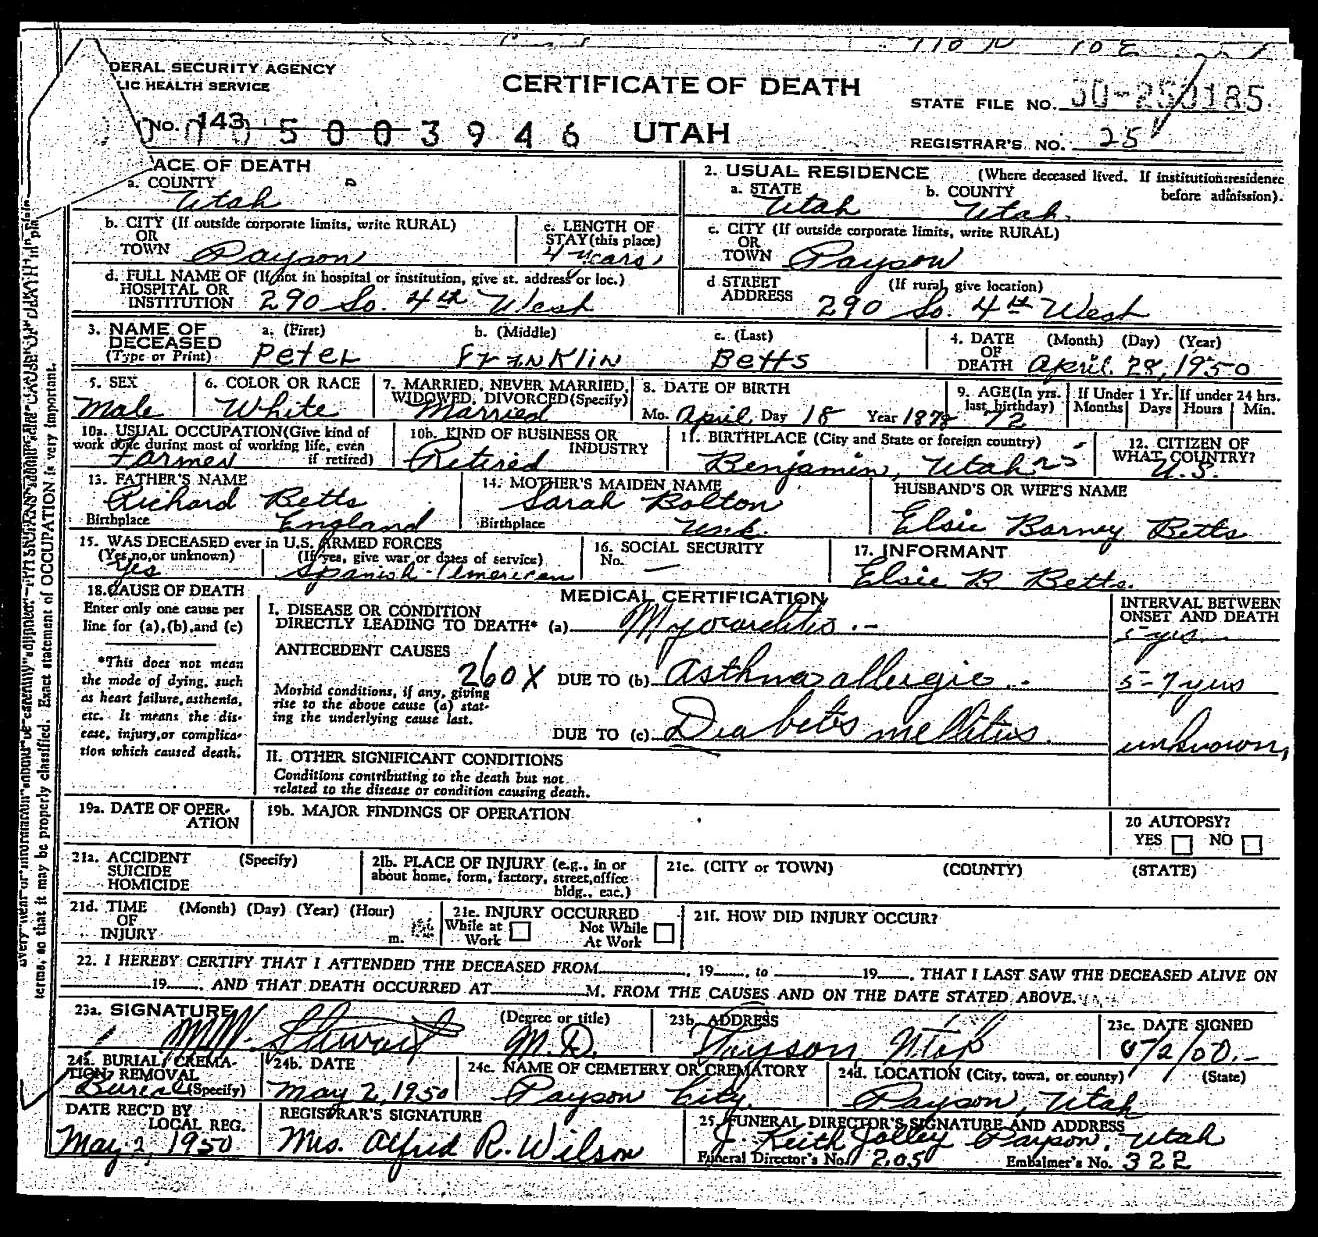 DERAL SECURITY AGENCY
LIC HEALTH SERVICE
CERTIFICATE OF DEATH
UTAH
STATE FILE NO. 50-250185
REGISTRAR'S NO. 25
No. 143
5003946
ACE OF DEATH
a. COUNTY
Utah
2. USUAL RESIDENCE (Where deceased lived. If institution:residence before admission).
a. STATE Utah b. COUNTY Utah
b. CITY (If outside corporate limits, write RURAL)
OR
TOWN Payson
c. LENGTH OF
STAY(this place)
4 years
c. CITY (If outside corporate limits, write RURAL)
OR
TOWN Payson
d. FULL NAME OF (If not in hospital or institution, give st. address or loc.)
HOSPITAL OR
INSTITUTION 290 So. 4th West
d STREET (If rural, give location)
ADDRESS 290 So. 4th West
3. NAME OF
DECEASED
(Type or Print)
a. (First) b. (Middle) c. (Last)
Peter Franklin Betts
4. DATE (Month) (Day) (Year)
OF
DEATH April 28, 1950
5. SEX
Male
6. COLOR OR RACE
White
7. MARRIED, NEVER MARRIED,
WIDOWED, DIVORCED(Specify)
Married
8. DATE OF BIRTH
Mo. April Day 18 Year 1878
9. AGE(In yrs.
last birthday)
72
If Under 1 Yr.
Months Days
If under 24 hrs.
Hours Min.
10a. USUAL OCCUPATION(Give kind of
work done during most of working life, even
if retired)
Farmer
10b. KIND OF BUSINESS OR
INDUSTRY
Retired
11. BIRTHPLACE (City and State or foreign country)
Benjamin, Utah
12. CITIZEN OF
WHAT COUNTRY?
U.S.
13. FATHER'S NAME
Richard Betts
Birthplace England
14. MOTHER'S MAIDEN NAME
Sarah Bolton
Birthplace Unk.
HUSBAND'S OR WIFE'S NAME
Elsie Barney Betts
15. WAS DECEASED ever in U.S. ARMED FORCES
(Yes,no,or unknown) (If yes, give war or dates of service)
Yes Spanish-American
16. SOCIAL SECURITY
No. —
17. INFORMANT
Elsie B. Betts.
18.CAUSE OF DEATH
Enter only one cause per
line for (a),(b),and (c)
*This does not mean
the mode of dying, such
as heart failure,asthenia,
etc. It means the dis-
ease, injury,or complica-
tion which caused death.
MEDICAL CERTIFICATION
I. DISEASE OR CONDITION
DIRECTLY LEADING TO DEATH* (a) Myocarditis
ANTECEDENT CAUSES
260X
Morbid conditions, if any, giving
rise to the above cause (a) stat-
ing the underlying cause last.
DUE TO (b) Asthma allergic
DUE TO (c) Diabetis mellitus
INTERVAL BETWEEN
ONSET AND DEATH
5 yrs
5-7 yrs
unknown
II. OTHER SIGNIFICANT CONDITIONS
Conditions contributing to the death but not
related to the disease or condition causing death.
19a. DATE OF OPER-
ATION
19b. MAJOR FINDINGS OF OPERATION
20 AUTOPSY?
YES NO
21a. ACCIDENT (Specify)
SUICIDE
HOMICIDE
21b. PLACE OF INJURY (e.g., in or
about home, form, factory, street,office
bldg., eac.)
21c. (CITY or TOWN) (COUNTY) (STATE)
21d. TIME (Month) (Day) (Year) (Hour)
OF
INJURY m.
21e. INJURY OCCURRED
While at Work
Not While At Work
21f. HOW DID INJURY OCCUR?
22. I HEREBY CERTIFY THAT I ATTENDED THE DECEASED FROM , 19 , to 19 , THAT I LAST SAW THE DECEASED ALIVE ON
19 , AND THAT DEATH OCCURRED AT M. FROM THE CAUSES AND ON THE DATE STATED ABOVE.
23a. SIGNATURE (Degree or title)
Stewart M.D.
23b. ADDRESS
Payson Utah
23c. DATE SIGNED
24a. BURIAL, CREMA-
TION REMOVAL
(Specify)
Burial
24b. DATE
May 2, 1950
24c. NAME OF CEMETERY OR CREMATORY
Payson City
24d. LOCATION (City, town, or county) (State)
Payson, Utah
DATE REC'D BY
LOCAL REG.
May 2, 1950
REGISTRAR'S SIGNATURE
Mrs. Alfred R. Wilson
25. FUNERAL DIRECTOR'S SIGNATURE AND ADDRESS
J. Keith Jolley Payson, Utah
Funeral Director's No. 205 Embalmer's No. 322
terms, so that it may be properly classified. Exact statement of OCCUPATION is very important.